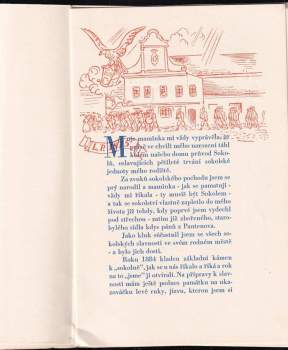 Moje maminka mi vždy vyprávěla, že
právě ve chvíli mého narození táhl
kolem našeho domu průvod Soko-
lů, oslavujících pětileté trvání sokolské
jednoty mého rodiště.
Za zvuků sokolského pochodu jsem se
prý narodil a maminka - jak se pamatuji -
vždy mi říkala - ty musíš být Sokolem -
a tak se sokolství vlastně zapletlo do mého
života již tehdy, kdy poprvé jsem vydechl
pod střechou - zatím již zbořeného, staro-
bylého sídla kdys pánů z Pantenova.
Jako kluk súčastnil jsem se všech so-
kolských slavností ve svém rodném místě
- a bylo jich dosti.
Roku 1884 kladen základní kámen
k „sokolně“, jak se u nás říkalo a říká a rok
na to „jsme“ ji otvírali. Na přípravy k slav-
nosti mám ještě podnes památku na uka-
zováčku levé ruky, jizvu, kterou jsem si